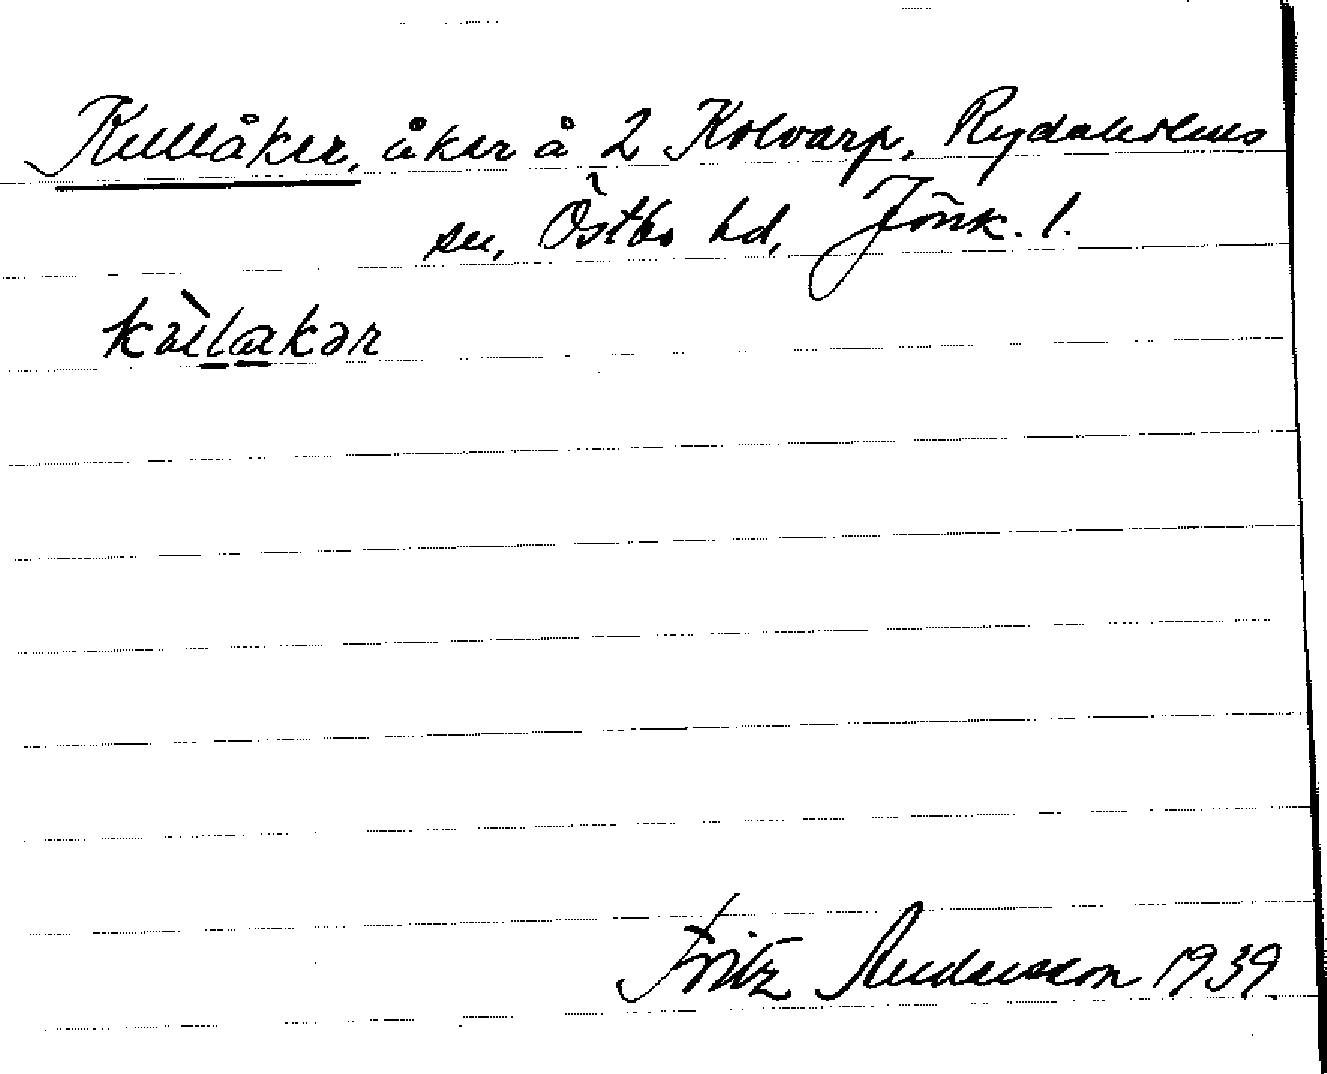 Kullåker, åker å 2 Kolvarp, Rydaholms
sn, Östbo hd, Jönk. l.
Fritz Andersson 1939